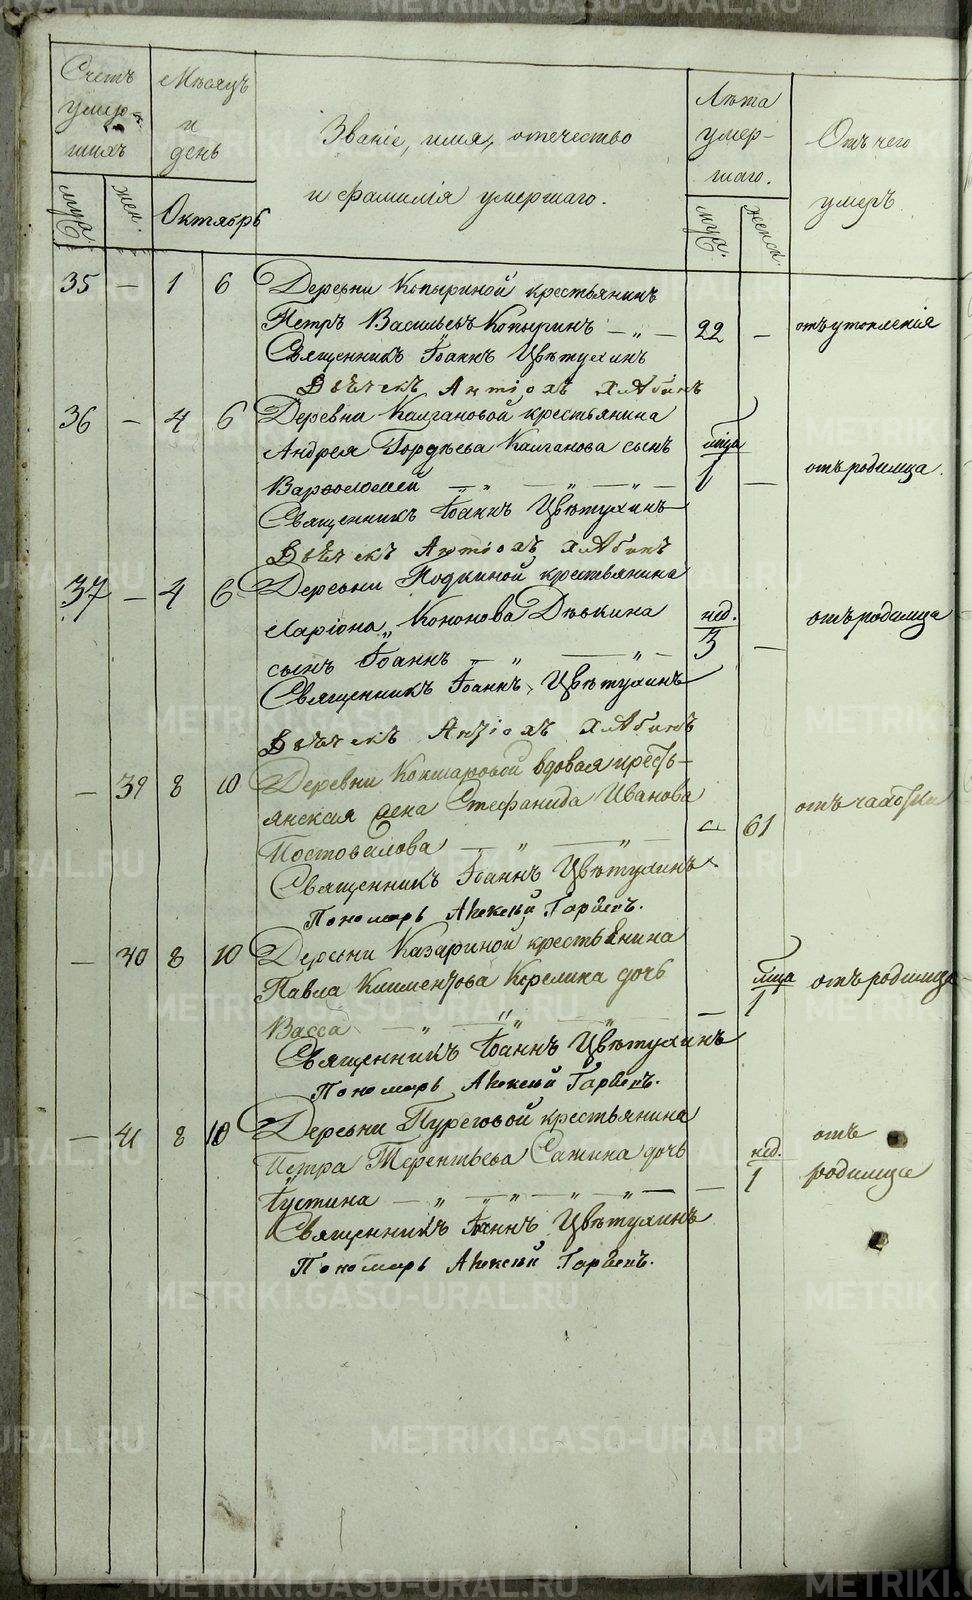 Счетъ умер-
шихъ
Мѣсяцъ
и
день
Званіе, имя, отечество
и фамилія умершаго.
Лѣта
умер-
шаго.
Отъ чего
умеръ.
муж.
жен.
Октябрь
муж.
женск.
35 — 1 6 Деревни Копыриной крестьянинъ
Петръ Васильевъ Копыринъ — „ — 22 — отъ утопленія
Священникъ Іоаннъ Цвѣтухинъ
Дьячекъ Антіохъ Хлѣбинъ
36 — 4 6 Деревни Калгановой крестьянина
Андрея Гордѣева Калганова сынъ м̃ца
Варѳоломей — „ — „ — „ — 1 — отъ родимца.
Священникъ Іоаннъ Цвѣтухинъ
Дьячекъ Антіохъ Хлѣбинъ
37 — 4 6 Деревни Подкиной крестьянина
Ларіона Кононова Дѣвкина нед. отъ родимца
сынъ Іоаннъ — „ — „ — 3 —
Священникъ Іоаннъ Цвѣтухинъ
Дьячекъ Антіохъ Хлѣбинъ
— 39 8 10 Деревни Кокшаровой вдовая кресть-
янская жена Стефанида Иванова отъ чахотки
Постовалова — „ — „ — 61
Священникъ Іоаннъ Цвѣтухинъ
Пономарь Алексѣй
— 40 8 10 Деревни Казариной крестьянина
Павла Климентова Корелина дочь м̃ца отъ родимца
Васса — „ — „ — „ — — 1
Священникъ Іоаннъ Цвѣтухинъ
Пономарь Алексѣй
— 41 8 10 Деревни Пуреговой крестьянина отъ
Петра Терентьева Сажина дочь нед. родимца
Іустина — „ — „ — „ — — 1
Священникъ Іоаннъ Цвѣтухинъ
Пономарь Алексѣй
METRIKI.GASO-URAL.RU